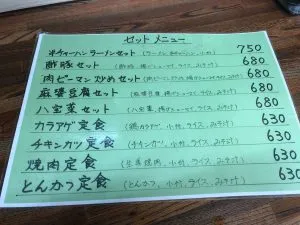 セットメニュー
半チャーハンラーメンセット (ラーメン、半チャーハン、小鉢) 750
酢豚セット (酢豚、揚げシューマイ、ライス、みそ汁) 680
肉ピーマン炒めセット (肉ピーマン炒め、揚げシューマイ、ライス、みそ汁) 680
麻婆豆腐セット (麻婆豆腐、揚げシューマイ、ライス、みそ汁) 680
八宝菜セット (八宝菜、揚げシューマイ、ライス、みそ汁) 680
カラアゲ定食 (鶏カラアゲ、小鉢、ライス、みそ汁) 630
チキンカツ定食 (チキンカツ、小鉢、ライス、みそ汁) 630
焼肉定食 (生姜焼肉、小鉢、ライス、みそ汁) 630
とんかつ定食 (とんかつ、小鉢、ライス、みそ汁) 630